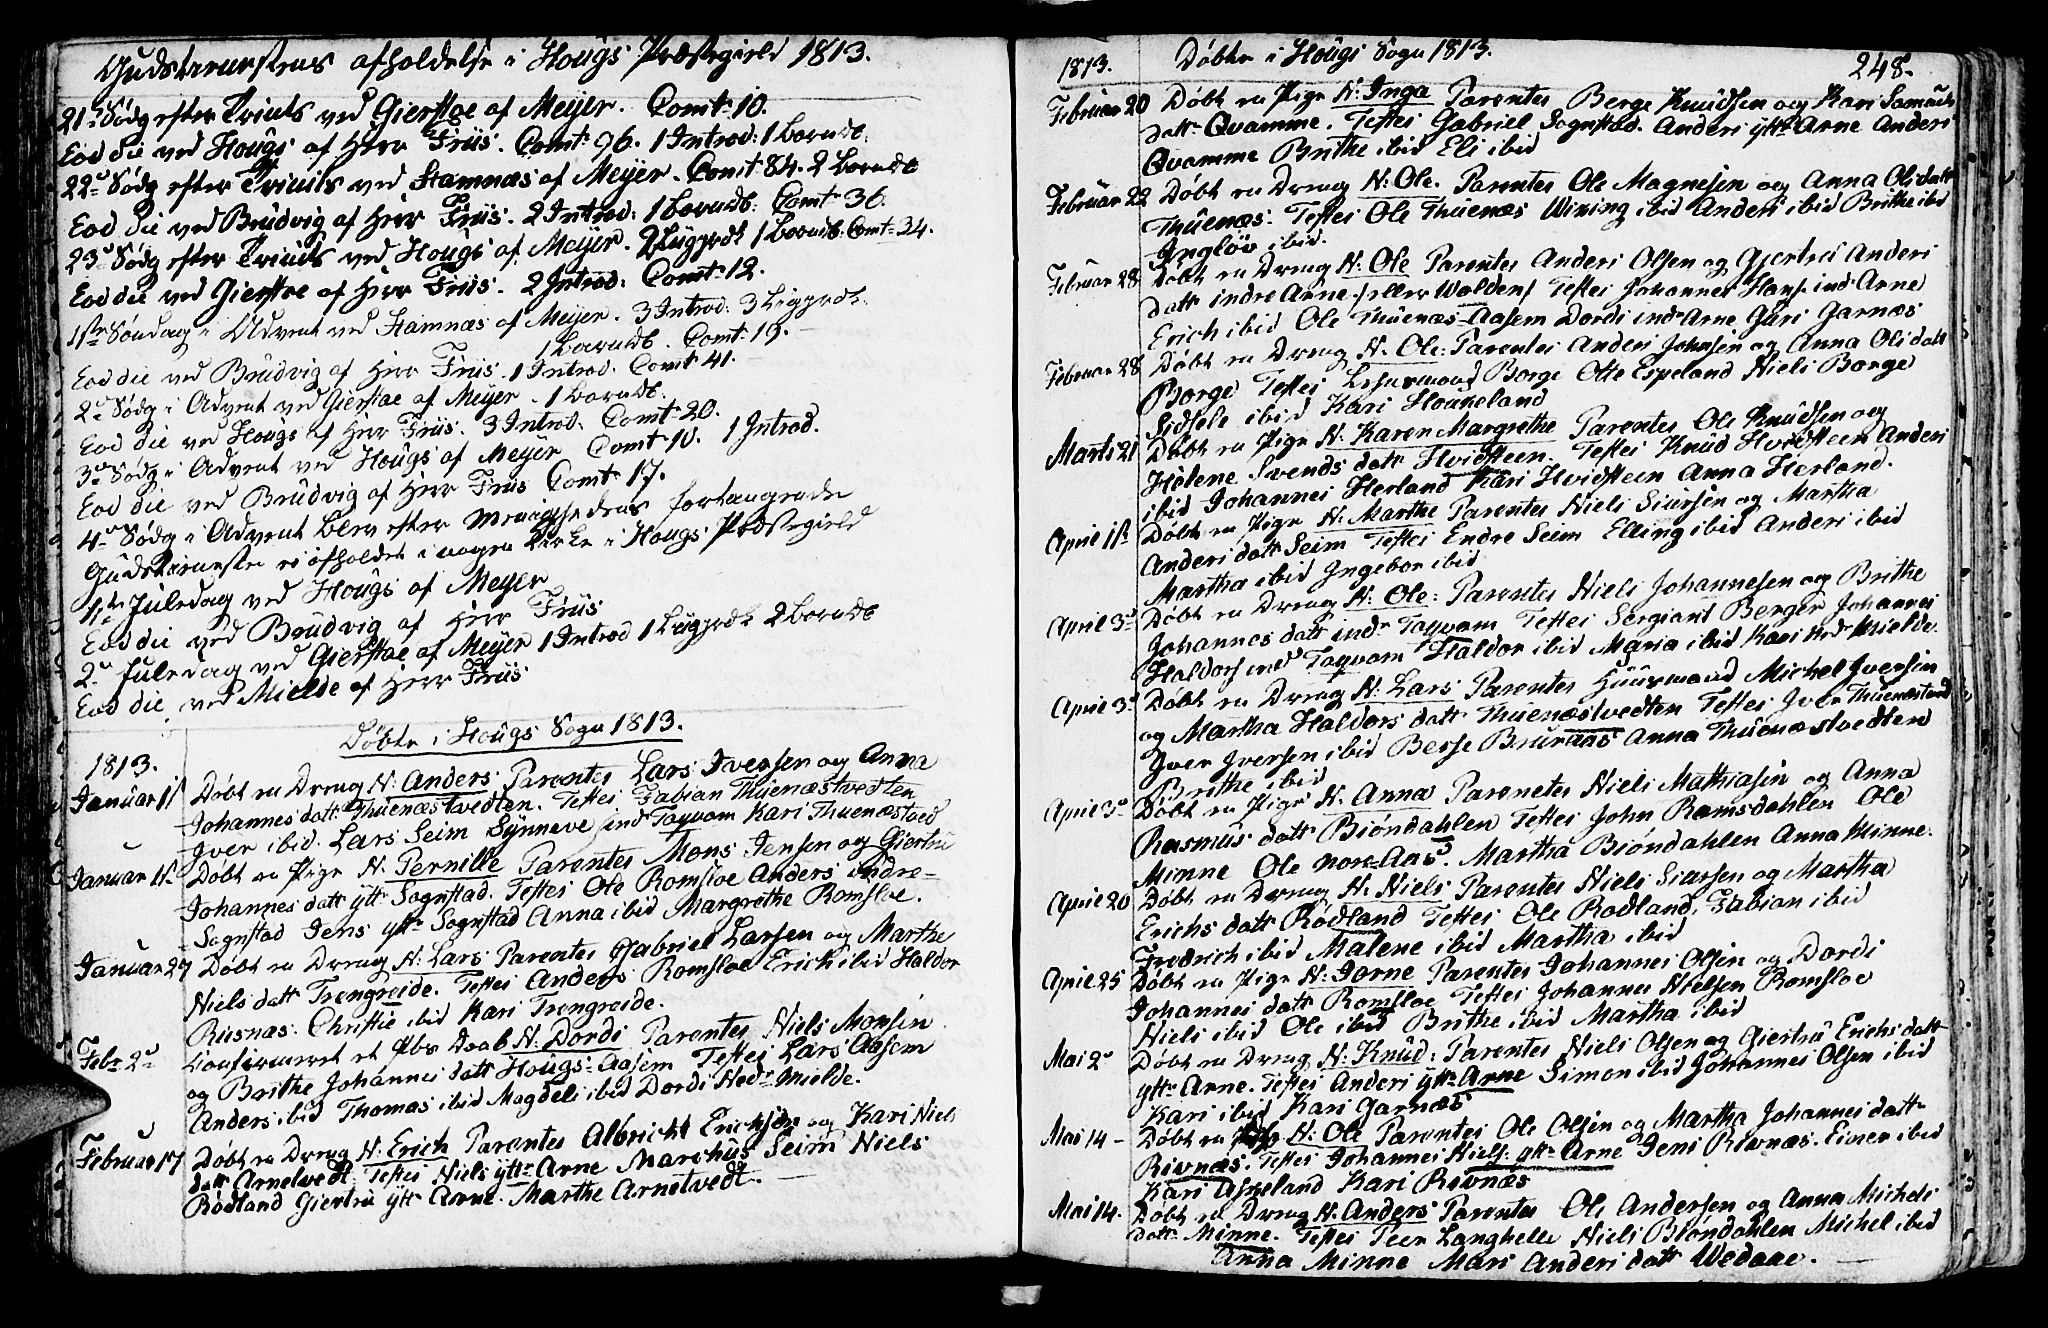 Gudstienestens afholdelse i Hougs Præstegield 1813.
21de Sødg efter Trinits ved Gierstae af Meyer. Comt: 10.
Eod die ved Hougs af Herr Friis. Comt: 96. 1 Introd: 1 Barndb:
22de Sødg efter Trinits ved Hamnæs af Meyer. Comt 84. 2 Barndb
Eod die ved Brudvig af Herr Friis. 2 Introd: 1 Barndb: Comt 36.
23de Sødg efter Trinits ved Hougs af Meyer. 2 Liigprdk 1 Barndb. Comt: 34.
Eod die ved Gierstae af Herr Friis. 2 Introd: Comt: 12.
1ste Søndag i Advent ved Hamnæs af Meyer. 3 Introd: 3 Ligprdk:
1 Barndb. Comt: 19.
Eod die ved Brudvig af Herr Friis. 1 Introd. Comt 41.
2den Sødg i Advent ved Gierstae af Meyer. 1 Barndb.
Eod die ved Hougs af Herr Friis. 3 Introd: Comt: 20.
3die Sødg i Advent ved Hougs af Meyer Comt 10. 1 Introd.
Eod die ved Brudvig af Herr Friis Comt: 17.
4de Sødg i Advent blev efter Menighedens forlangende
Gudstieneste ei afholdet i nogen Kirke i Hougs Præstegield
1ste Juledag ved Hougs af Meyer
Eod die ved Brudvig af Herr Friis
2den Juledag ved Gierstae af Meyer 1 Introd 1 Liigprdk 2 Barndb
Eod die ved Mielde af Herr Friis
Døbte i Hougs Sogn 1813.
1813.
Januar 1ste Døbt en Dreng N: Anders Parentes Lars Iversen og Anna
Johannes datt: Thuenæstvedten. Testes Fabian Thuenæstvedten
Iver ibid. Lars Seim Synneve ind Tagvam Kari Thuenæstved
Januar 1st. Døbt en Pige N. Pernille Parentes Mons Jensen og Giertru
Johannes datt ytt: Sognstad. Testes Ole Romsloe Anders indre
Sognstad Jens ytt: Sognstad Anna ibid Margrethe Romsloe.
Januar 27 Døbt en Dreng N: Lars Parentes Gabriel Larsen og Marthe
Niels datt Trengreide. Testes Anders Romsloe Erich ibid Haldor
Rusnæs. Christie ibid Kari Trengreide.
Febr 2den Confirmeret et Pbr Daab N: Dordi Parentes Niels Monsen
og Brithe Johannes datt Hougs-Aasem Testes Lars Aasem
Anders ibid Thomas ibid Magdeli ibid Dordi Nedr Mielde.
Februar 17 Døbt en Dreng N: Erich Parentes Albricht Ericksen og Kari Niels
datt Arnetvedt. Testes Niels ytt: Arne Marchus Seim Niels
Rødland Giertru ytt Arne. Marthe Arnetvedt.
1813. Døbte i Hougs Sogn 1813. 248.
Februar 20 Døbt en Pige N: Inga Parentes Berge Knudsen og Kari Samuels
datt: Qvamme. Testes Gabriel Sognstad. Anders ytt: Arne Anders
Qvamme Brithe ibid Eli ibid
Februar 22 Døbt en Dreng N: Ole. Parentes Ole Magnesen og Anna Ols datt
Thuenæs. Testes Ole Thuenæs Wiking ibid Anders ibid Brithe ibid
Ingløv ibid.
Februar 28 Døbt en Dreng N: Ole Parentes Anders Olsen og Gjertrud Anders
datt indre Arne / eller Walden / Testes Johannes Hans: ind Arne
Erich ibid Ole Thuenæs-Aasem Dordi ind: Arne Guri Garnæs
Februar 28 Døbt en Dreng N. Ole: Parentes Anders Johnsen og Anna Ols datt
Borge Testes Lehnsmand Borge Olle Espeland Niels Borge
Sidsele ibid Kari Houkeland
Marts 21 Døbt en Pige N. Karen Margrethe Parentes Ole Knudsen og
Helene Svends datt Hvidsteen. Testes Knud Hvidsteen Anders
ibid Johannes Herland Kari Hvidsteen Anna Herland.
April 1st. Døbt en Pige N. Marthe Parentes Niels Siursen og Martha
Anders datt Seim Testes Endre Seim Elling ibid Anders ibid
Martha ibid Ingebor ibid
April 3d Døbt en Dreng N: Ole: Parentes Niels Johannesen og Brithe
Johannes datt ind: Tagvam Testes Sergiant Berger Johannes
Haldors: ind Tagvam Haldor ibid Maria ibid Kari Nedr Mielde.
April 3d Døbt en Dreng N: Lars Parentes Huusmand Michel Iversen
og Martha Haldors datt Thuenæstvedten Testes Iver Thuenæstvedt
Iver Iversen ibid Berse Bruraas Anna Thuenæstvedten
Brithe ibid
April 3d Døbt en Pige N. Anna Parentes Niels Mathiasen og Anna
Rasmus datt Biøndahlen Testes John Ramsdahlen Ole
Minne Ole Nore-Aas. Martha Biøndahlen Anna Minne.
April 20 Døbt en Dreng N. Niels Parentes Niels Siursen og Martha
Erichs datt Rødland Testes Ole Rødland, Fabian ibid
Fredrich ibid Malene ibid Martha ibid
April 25 Døbt en Pige N: Jorne Parentes Johannes Olsen og Dordi
Johannes datt Romsloe Testes Johannes Nielsen Romsloe
Niels ibid Ole ibid Brithe ibid Martha ibid
Mai 2den Døbt en Dreng N: Knud: Parentes Niels Olsen og Giertru Erichs datt
ytt: Arne. Testes Anders ytt: Arne Simon ibid Johannes Olsen ibid
Kari ibid Kari Garnæs
Mai 14 – Døbt en N: Ole Parentes Ole Olsen og Martha Johannes datt
Rivnæs. Testes Johannes Niels: ytt: Arne Jens Rivnæs. Einer ibid
Kari Askeland Kari Rivnæs
Mai 14. Døbt en Dreng N. Anders Parentes Ole Andersen og Anna Michels
datt: Minne. Testes Peer Langhelle Niels Biøndahlen Michel ibid
Anna Minne Mari Anders datt Wedaae.